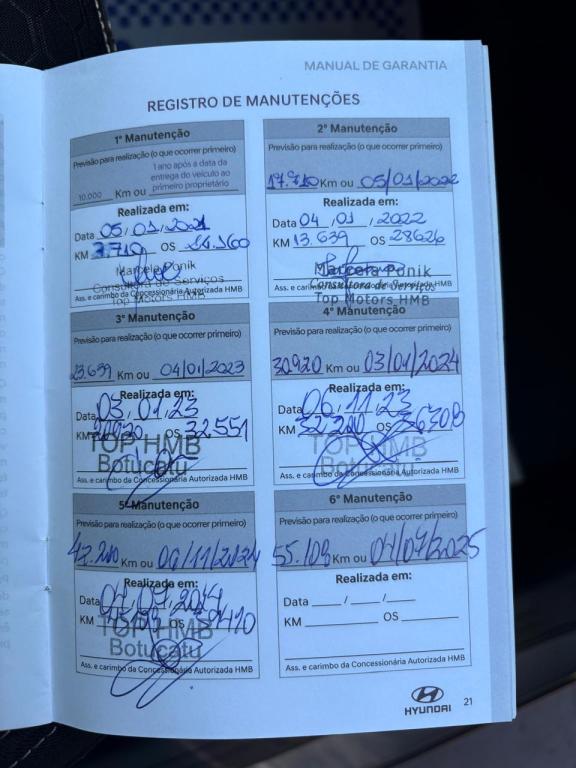 MANUAL DE GARANTIA
REGISTRO DE MANUTENÇÕES
1ª Manutenção
Previsão para realização (o que ocorrer primeiro)
10.000 Km ou 1 ano após a data da entrega do veículo ao primeiro proprietário
Realizada em:
Data 05 / 01 / 2021
KM 7.710 OS
Marcela Ponik
Consultora de Serviços
Ass. e carimbo da Concessionária Autorizada HMB
Top Motors HMB
2ª Manutenção
Previsão para realização (o que ocorrer primeiro)
17.710 Km ou 05/01/2022
Realizada em:
Data 04 / 01 / 2022
KM 13.639 OS 28626
Marcela Ponik
Consultora de Serviços
Ass. e carimbo da Concessionária Autorizada HMB
Top Motors HMB
3ª Manutenção
Previsão para realização (o que ocorrer primeiro)
23.639 Km ou 04/01/2023
Realizada em:
Data 03, 01, 23
KM 20920 OS 32.551
TOP HMB
Botucatu
Ass. e carimbo da Concessionária Autorizada HMB
4ª Manutenção
Previsão para realização (o que ocorrer primeiro)
30920 Km ou 03/01/2024
Realizada em:
Data 06, 11, 23
KM 32.200 OS
TOP HMB
Botucatu
Ass. e carimbo da Concessionária Autorizada HMB
5ª Manutenção
Previsão para realização (o que ocorrer primeiro)
42.200 Km ou 06/11/2024
Realizada em:
Data
KM OS
TOP HMB
Botucatu
Ass. e carimbo da Concessionária Autorizada HMB
6ª Manutenção
Previsão para realização (o que ocorrer primeiro)
55.109 Km ou 04/07/2025
Realizada em:
Data ____ / ____ / ____
KM ________ OS ________
Ass. e carimbo da Concessionária Autorizada HMB
HYUNDAI
21